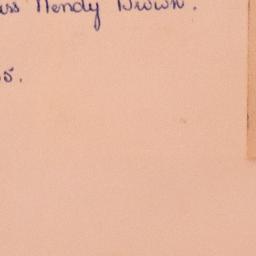 ss Wendy Brown.
5.